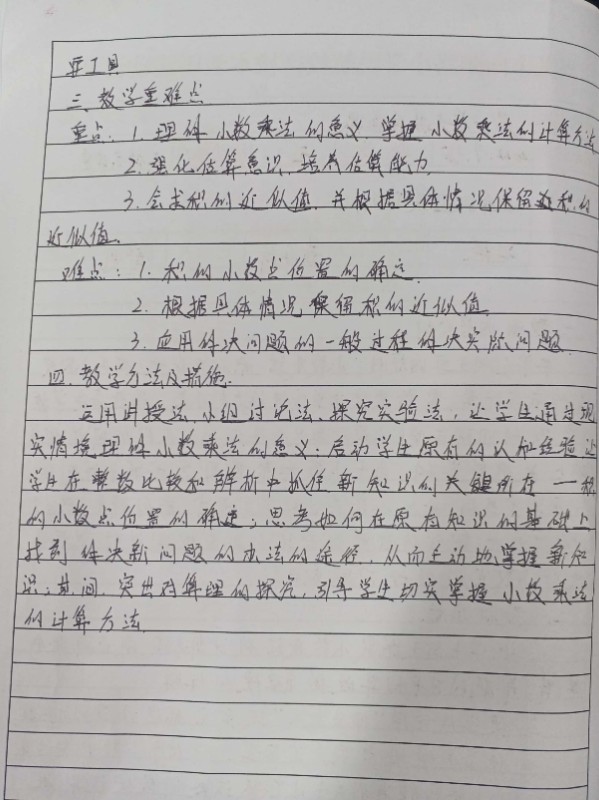 要工具
三、教学重难点
重点：1.理解小数乘法的意义，掌握小数乘法的计算方法
2.强化估算意识，培养估算能力
3.会求积的近似值，并根据具体情况保留积的
近似值。
难点：1.积的小数点位置的确定
2.根据具体情况保留积的近似值
3.应用解决问题的一般过程解决实际问题
四、教学方法及措施
运用讲授法、小组讨论法、探究实验法，让学生通过现
实情境理解小数乘法的意义；启动学生原有的认知经验让
学生在整数比较和解析中抓住新知识的关键所在——积
的小数点位置的确定；思考如何在原有知识的基础上
找到解决新问题的办法的途径，从而主动地掌握新知
识；其间，突出对算理的探究，引导学生切实掌握小数乘法
的计算方法